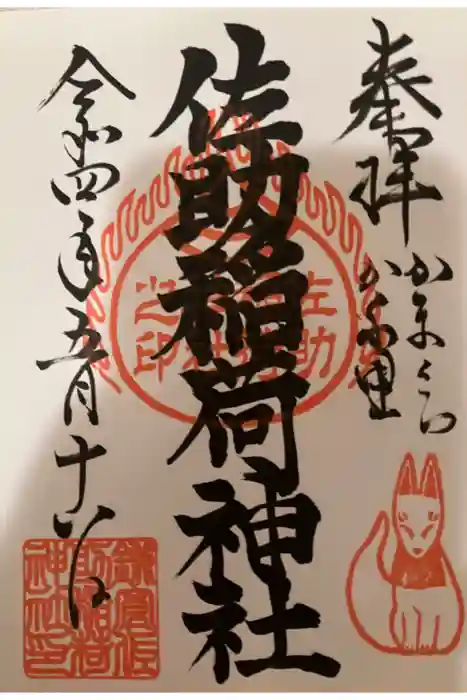 奉拝
かまくら
かくれ里
佐助稲荷神社
令和四年五月十八日
佐助
稲荷
神社
之印
鎌倉佐
助稲荷
神社印